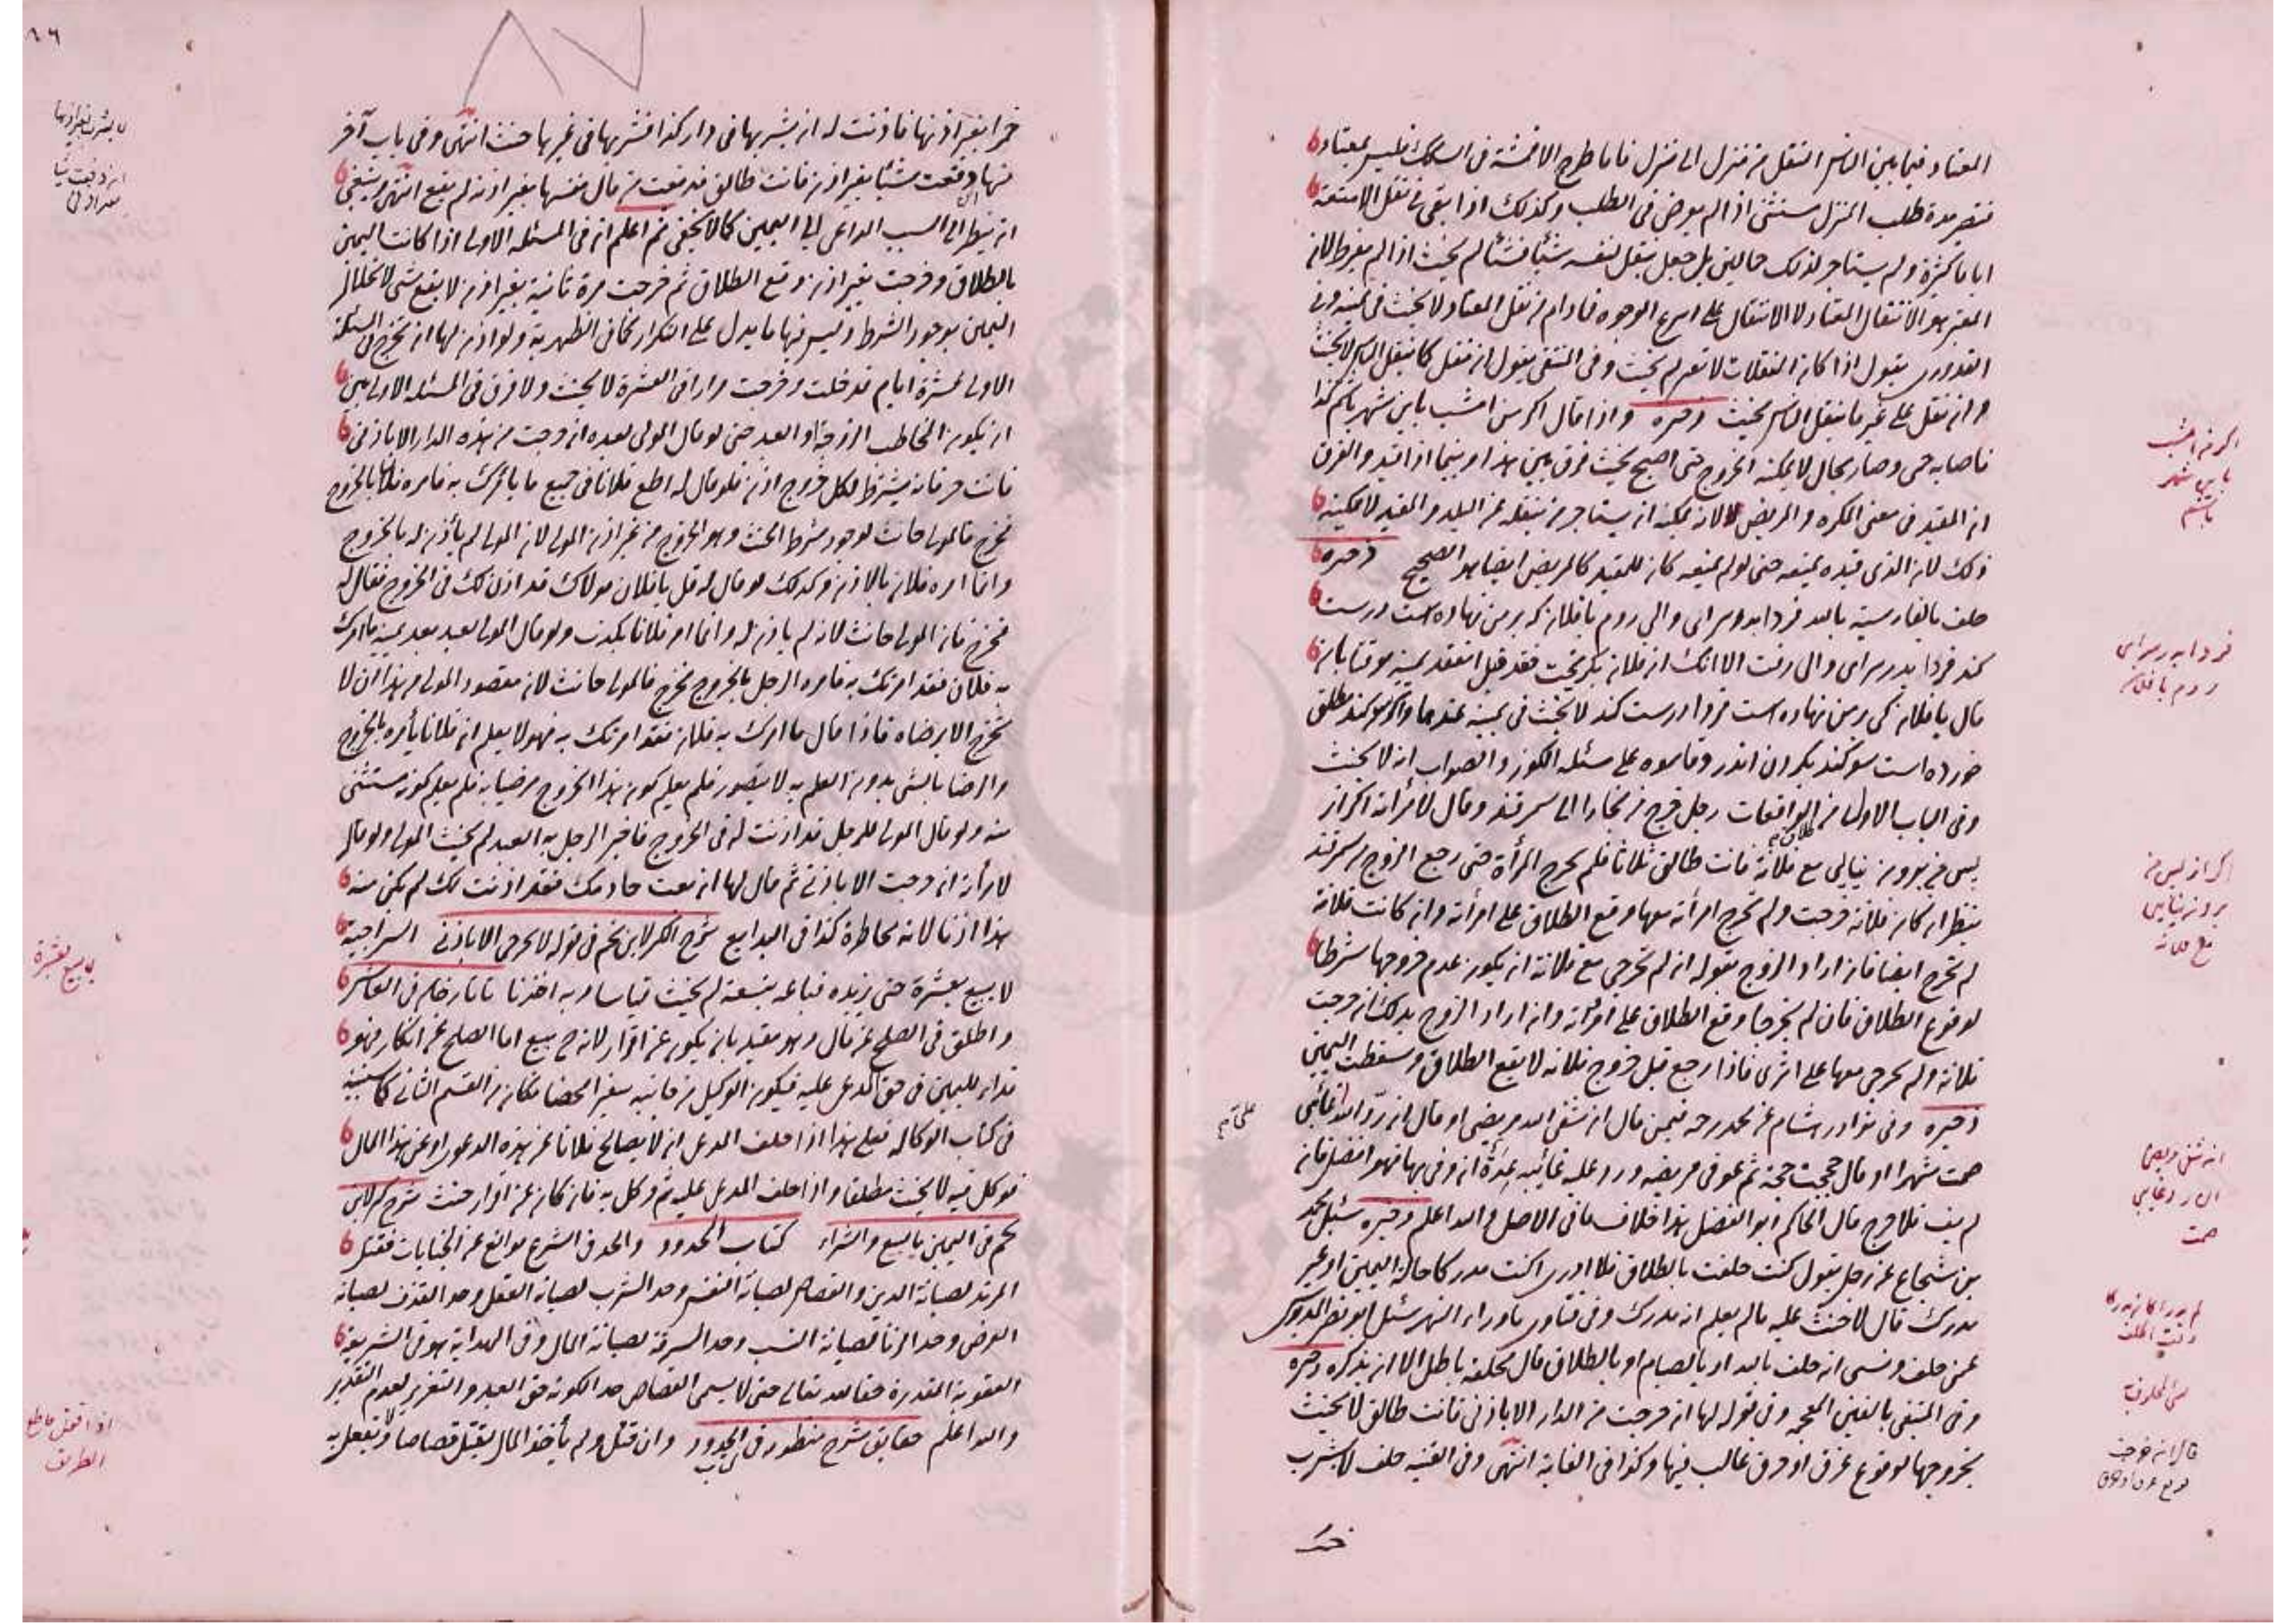 المعتاد فيما بين الناس النقل من منزل الى منزل فاما طرح الاقمشة فى السكك فليس بمعتاد
فتصير مدة طلب المنزل مستثنى اذا لم يعرض فى الطلب وكذلك اذا بقى فى نقل الامتعة
اياما كثيرة ولم يستاجر لذلك حمالين بل جعل ينقل بنفسه شيئا فشيئا لم يحنث اذا لم يفرط لان
المعتبر هو الانتقال المعتاد لا الانتقال على اسرع الوجوه فمادام فى نقل المعتاد لا يحنث فى يمينه وفى
القدورى يقول اذا كان النقلات لا تفتر لم يحنث وفى المنتقى يقول ان نقل كما ينقل الناس لا يحنث
وان نقل على غير ما ينقل الناس يحنث ذخيره واذا قال اكر من امشب باين شهر باشم كذا
فاصابه حمى وصار بحال لا يمكنه الخروج حتى اصبح يحنث فرق بين هذا وبينما اذا قيد والفرق
ان المقيد فى معنى المكره والمريض لا لانه يمكنه ان يستاجر من ينقله عن البلد والمقيد لا يمكنه
ذلك لان الذى قيده يمنعه حتى لو لم يمنعه كان المقيد كالمريض ايضا هو الصحيح ذخيره
حلف بالفارسية بالله فردا بدر سراى والى روم با فلان كه بر من نهاده است درست
كند فردا بدر سراى والى رفت الا انك از فلان بكريخت فقد قيل انعقد يمينه موقتا بان
قال با فلان كى بر من نهاده است فردا درست كند لا يحنث فى يمينه عندهما واكر سوكند مطلق
خورده است سوكند بكردن اندر وقاسوه على مسئلة الكوز والصواب انه لا يحنث
وفى الباب الاول من الواقعات رجل خرج من بخارا الى سمرقند وقال لامرأته اكر از
پس من برون نيايى مع فلانة فانت طالق ثلاثا فلم تخرج المرأة حتى رجع الزوج من سمرقند
ينظر ان كان فلانة خرجت ولم تخرج امرأته معها وقع الطلاق على امرأته وان كانت فلانة
لم تخرج ايضا فان اراد الزوج بقوله ان لم تخرجى مع فلانة ان يكون عدم خروجها شرطا
لوقوع الطلاق فان لم يخرجا وقع الطلاق على امرأته وان اراد الزوج بذلك ان خرجت
فلانة ولم تخرجى معها على اثرى فاذا رجع قبل خروج فلانة لا يقع الطلاق وسقطت اليمين
ذخيره وفى نوادر هشام عن محمد رحه فيمن قال ان شفى الله مريضى او قال ان رد الله غائبى
صمت شهرا او قال حججت حجة ثم عوفى مريضه ورد عليه غائبه عدة ان وفى بها فهو افضل فان
لم يف فلا حرج قال الحاكم ابو الفضل هذا خلاف ما فى الاصل والله اعلم ذخيره سئل محمد
بن شجاع عن رجل يقول كنت حلفت بالطلاق فلا ادرى اكنت مدركا حالة اليمين او غير
مدرك قال لا حنث عليه ما لم يعلم انه مدرك وفى فتاوى ما وراء النهر سئل ابو نصر الدبوسى
عمن حلف ونسى انه حلف بالله او بالصيام او بالطلاق قال حلفه باطل الا ان يذكره ذخيره
وفى المنتقى بالغين المعجمة وفى قوله لها ان خرجت من الدار الا باذنى فانت طالق لا يحنث
بخروجها لوقوع غرق او حرق غالب فيها وكذا فى الغاية انتهى وفى القنية حلف لا يشرب
خمرا
اكر من امشب
باين شهر
باشم
فردا بدر سراى
روم با فلان
اكر از پس من
برون نيايى
مع فلانة
ان شفى مريضى
ان رد غايبى
صمت
وقت الحلف
قال ان خرجت
خمرا بغير اذنها فاذنت له ان يشربها فى دار كذا فشربها فى غيرها حنث انتهى وفى باب آخر
منها دفعت شيئا بغير اذنى فانت طالق فدفعت من مال نفسها بغير اذنه لم يقع انتهى وينبغى
ان ينظر الى السبب الداعى الى اليمين كما لا يخفى ثم اعلم ان فى المسئلة الاولى اذا كانت اليمين
بالطلاق وخرجت بغير اذن وقع الطلاق ثم خرجت مرة ثانية بغير اذن لا يقع شى لانحلال
اليمين بوجود الشرط وليس فيها ما يدل على التكرار كما فى الظهيرية ولو اذن لها ان تخرج فى المسئلة
الاولى عشرة ايام فدخلت وخرجت مرارا فى العشرة لا يحنث ولا فرق فى المسئلة الاولى بين
ان يكون المخاطب الزوجة او العبد حتى لو قال المولى لعبده ان خرجت من هذه الدار الا باذنى
فانت حر فانه يشترط لكل خروج اذن فلو قال له اطع فلانا فى جميع ما يأمرك به فامره فلان بالخروج
فخرج فالمولى حانث لوجود شرط الحنث وهو الخروج من غير اذن المولى لان المولى لم يأذن له بالخروج
وانما امره فلان بالاذن وكذلك لو قال له قل يا فلان مولاك قد اذن لك فى الخروج فقال له
فخرج فان المولى حانث لانه لم ياذن له وانما امر فلانا بكذب ولو قال المولى لعبده بعد يمينه ما امرك
به فلان فقد امرتك به فامره الرجل بالخروج فخرج فالمولى حانث لان مقصود المولى من هذا ان لا
تخرج الا برضاه فاذا قال ما امرك به فلان فقد امرتك به فهو لا يعلم ان فلانا يأمره بالخروج
والرضا بالشى بدون العلم به لا يتصور فلم يعلم كون هذا الخروج مرضيا به فلم يعلم كونه مستثنى
منه ولو قال المولى للرجل قد اذنت له فى الخروج فاخبر الرجل به العبد لم يحنث المولى ولو قال
لامرأته ان خرجت الا باذنى ثم قال لها ان بعت خادمك فقد اذنت لك لم يكن منه
هذا اذنا لانه مخاطرة كذا فى البدايع شرح الكنز لابن نجيم فى قوله لا تخرجى الا باذنى السراجية
لا يبيع بعشرة حتى يزيده فباعه بتسعة لم يحنث قياسا وبه اخذنا تاتارخان فى العاشر
واطلق فى الصلح عن مال وهو مقيد بان يكون عن اقرار لانه ح بيع اما الصلح عن انكار فهو
فداء لليمين فى حق المدعى عليه فيكون الوكيل من جانبه سفيرا محضا فكان من القسم الثانى كما سنبينه
فى كتاب الوكالة فعلى هذا اذا حلف المدعى ان لا يصالح فلانا عن هذه الدعوى او عن هذا المال
فوكل فيه لا يحنث مطلقا واذا حلف المدعى عليه ثم وكل به فان كان عن اقرار حنث شرح كنز لابن
نجيم فى اليمين بالبيع والشراء كتاب الحدود والحد فى الشرع موانع عن الجنايات فقتل
المرتد لصيانة الدين والقصاص لصيانة النفس وحد الشرب لصيانة العقل وحد القذف لصيانة
العرض وحد الزنا لصيانة النسب وحد السرقة لصيانة المال وفى الهداية هو فى الشريعة
العقوبة المقدرة حقا لله تعالى حتى لا يسمى القصاص حدا لكونه حق العبد والتعزير لعدم التقدير
والله اعلم حقايق شرح منظوره فى الحدود وان قتل ولم يأخذ المال يقتل قصاصا ويفعل به
لا يبيع بعشرة
اذا قتل قاطع
الطريق